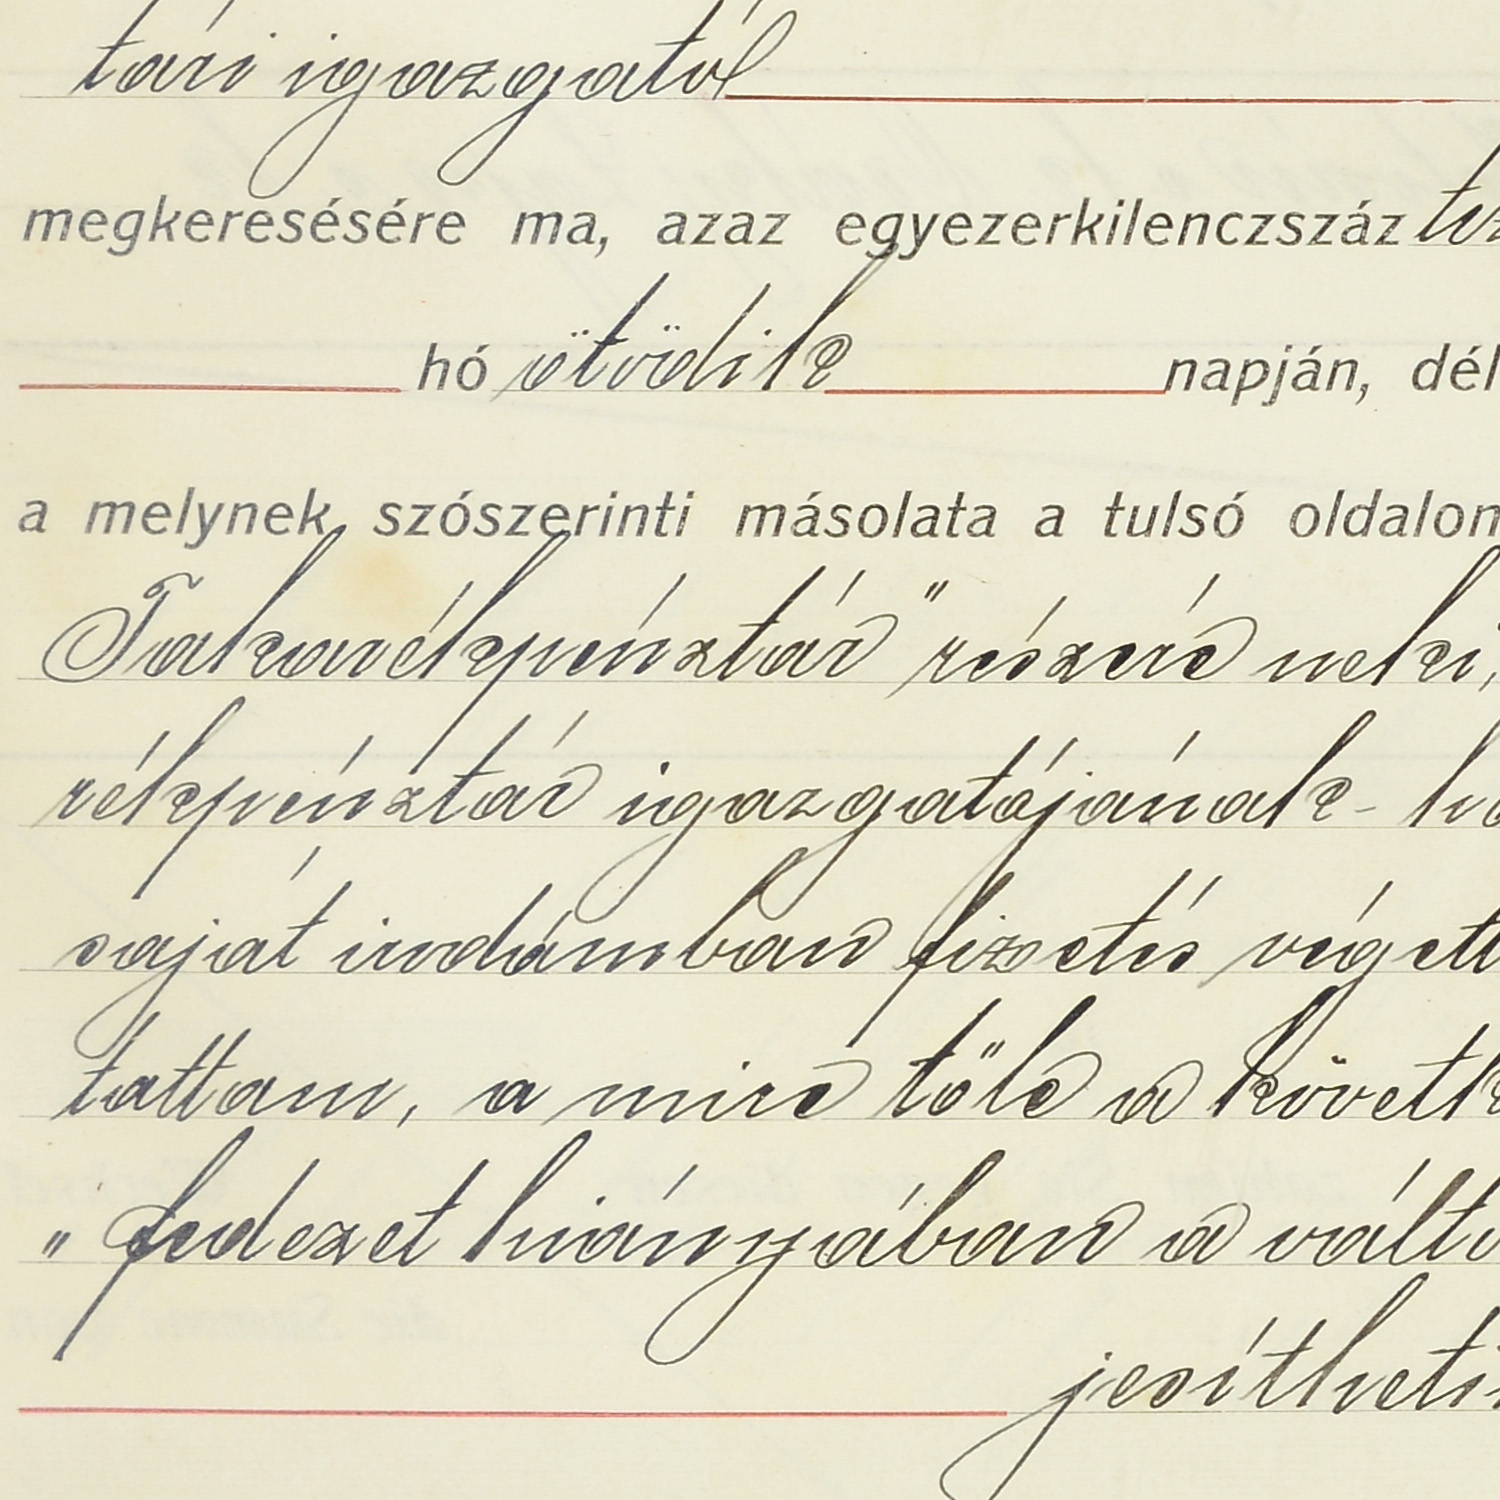 tári igazgatól
megkeresésére ma, azaz egyezerkilenczszáz
hó ötödik napján, dél
a melynek szószerinti másolata a tulsó oldalon
Takarékpénztár" részére neki,
rékpénztár igazgatójának-
saját irodámban fizetés végett
tattam, a mire tőle a követk
"fedezet hiányában a váltó
jesítheti